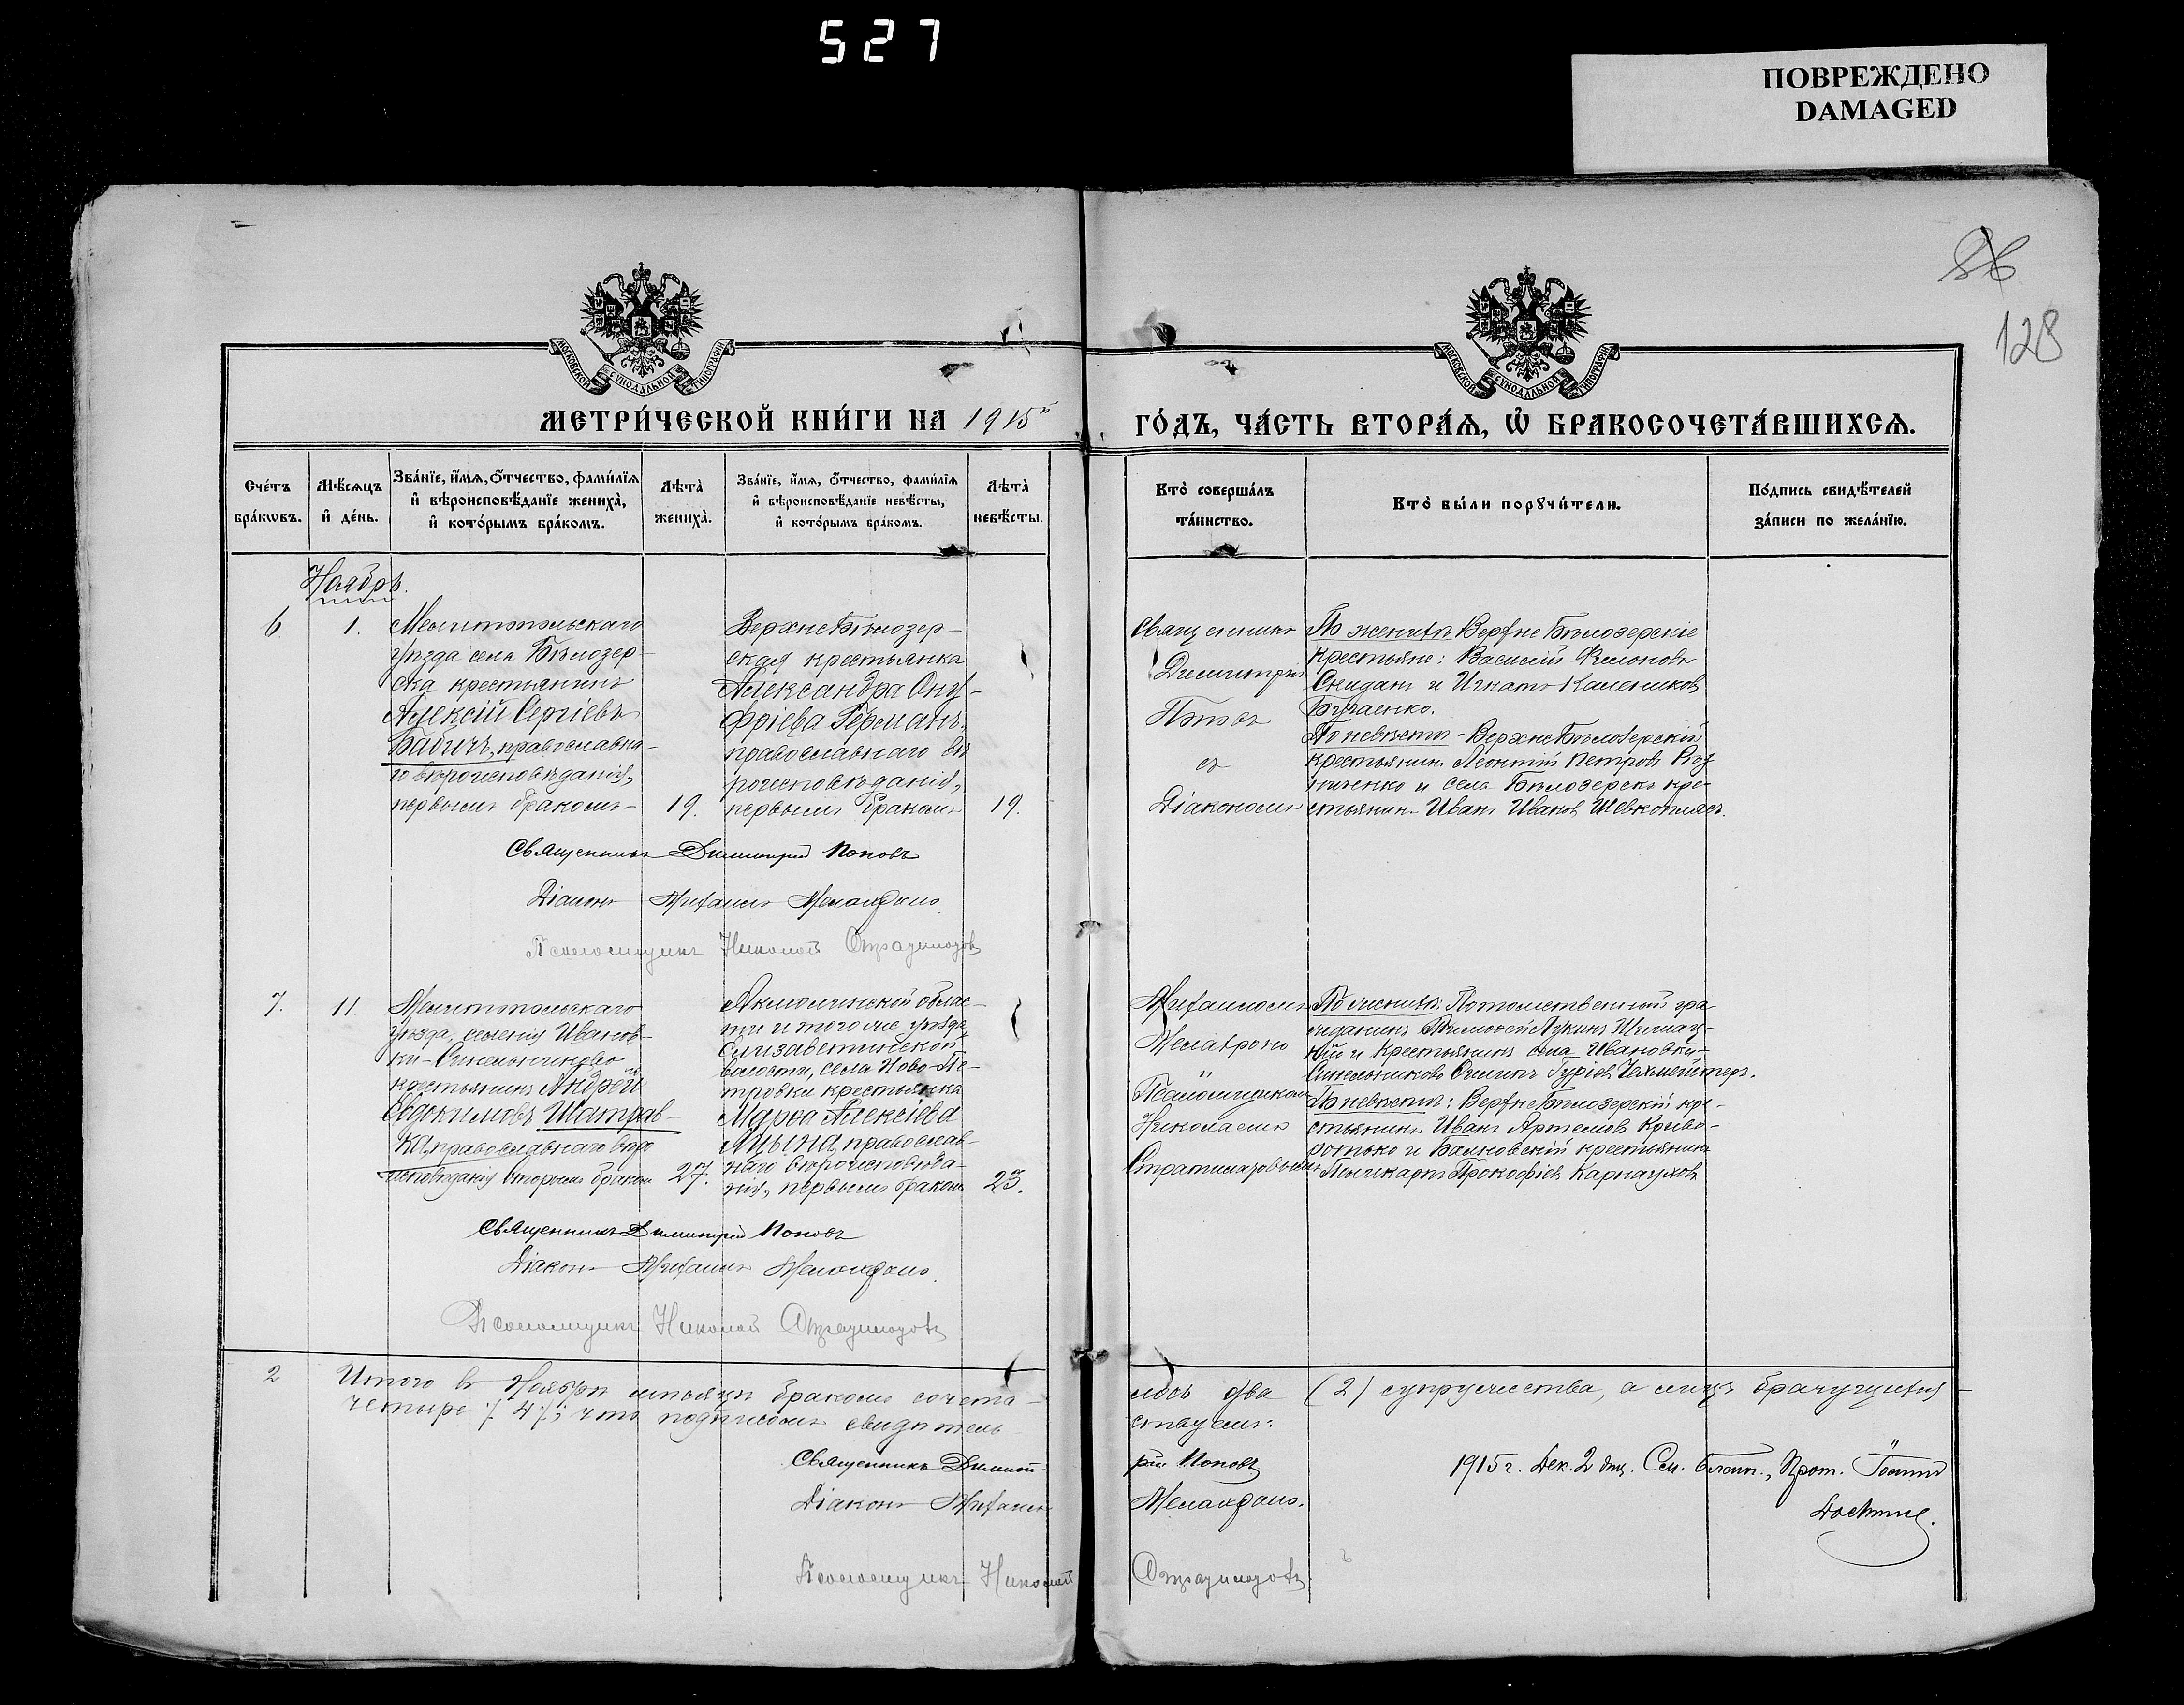 527
ПОВРЕЖДЕНО
DAMAGED
86
128
МОСКОВСКОЙ СѴНОДАЛЬНОЙ ТИПОГРАФІИ
МОСКОВСКОЙ СѴНОДАЛЬНОЙ ТИПОГРАФІИ
МЕТРИ́ЧЕСКОЙ КНИ́ГИ НА 1915й
ГО́ДЪ, ЧА́СТЬ ВТОРА́Ѧ, Ѽ БРАКОСОЧЕТА́ВШИХСѦ.
Сче́тъ
бра́кѡвъ.
Мѣ́сѧцъ
и҆ де́нь.
Зва́нїе, и҆́мѧ, ѻ҆́тчество, фами́лїѧ
и҆ вѣроисповѣ́данїе жениха̀,
и҆ кото́рымъ бра́комъ.
Лѣта̀
жениха̀.
Зва́нїе, и҆́мѧ, ѻ҆́тчество, фами́лїѧ
и҆ вѣроисповѣ́данїе невѣ́сты,
и҆ кото́рымъ бра́комъ.
Лѣта̀
невѣ́сты.
Кто̀ соверша́лъ
та́инство.
Кто̀ бы́ли порꙋчи́тели.
По́дпись свидѣ́телей
за́писи по жела́нїю.
Ноябрь.
6
1.
Мелитопольскаго
уѣзда села Бѣлозер-
ска крестьянинъ
Алексій Сергіевъ
Бабичъ, православна-
го вѣроисповѣданія,
первымъ бракомъ-
19.
Верхнебѣлозер-
ская крестьянка
Александра Онуф-
фріева Германъ,
православнаго вѣ
роисповѣданія,
первымъ бракомъ
19.
Священникъ
Димитрій
Поповъ
съ
Діакономъ
По женихѣ Верхне Бѣлозерскіе
крестьяне: Василій Филоновъ
и Игнатъ
По невѣстѣ - Верхнебѣлозерскій
крестьянинъ Леонтій Петровъ Коз
ниченко и села Бѣлозерска кре-
стьянинъ Иванъ Ивановъ Шевкоплясъ.
Священникъ Димитрій Поповъ
Діаконъ Михаилъ
Псаломщикъ Николай Стратилатовъ
7.
11
Мелитопольскаго
уѣзда, селенія Иванов-
ки-Синельниково
крестьянинъ Андрей
Евдокимовъ Шатрав-
ка, православнаго вѣро
исповѣданія вторымъ бракомъ
27.
Акмолинской облас-
ти и того же уѣзда
Елизаветинской
волости, села Ново-Пе-
тровки крестьянка
Марѳа Алексѣева
Яцына, православ-
наго вѣроисповѣда-
нія, первымъ бракомъ
23.
Михаиломъ
Псаломщикомъ
Николаемъ
Стратилатовымъ
По женихѣ: Потомственный гра
жданинъ Тимофей Лукинъ
и крестьянинъ села Ивановки-
Синельниково Осипъ Гуріевъ Цехмейстеръ.
По невѣстѣ: Верхнебѣлозерскій кре-
стьянинъ Иванъ Артемовъ Криво-
ротько и Балковскій крестьянинъ
Поликарпъ Прокофіевъ Карнауховъ
Священникъ Димитрій Поповъ
Діаконъ Михаилъ
Псаломщикъ Николай Стратилатовъ
2
Итого въ Ноябрѣ мѣсяцѣ бракомъ сочета-
лось два (2) супружества, а лицъ брачущихся -
четыре /4/; что подписомъ свидѣтель
ствуемъ:
Священникъ Димит-
рій Поповъ
Діаконъ Михаилъ
Псаломщикъ Николай
Стратилатовъ
1915 г. Дек. 2 дня. См. благоч., Прот. Іоаннъ